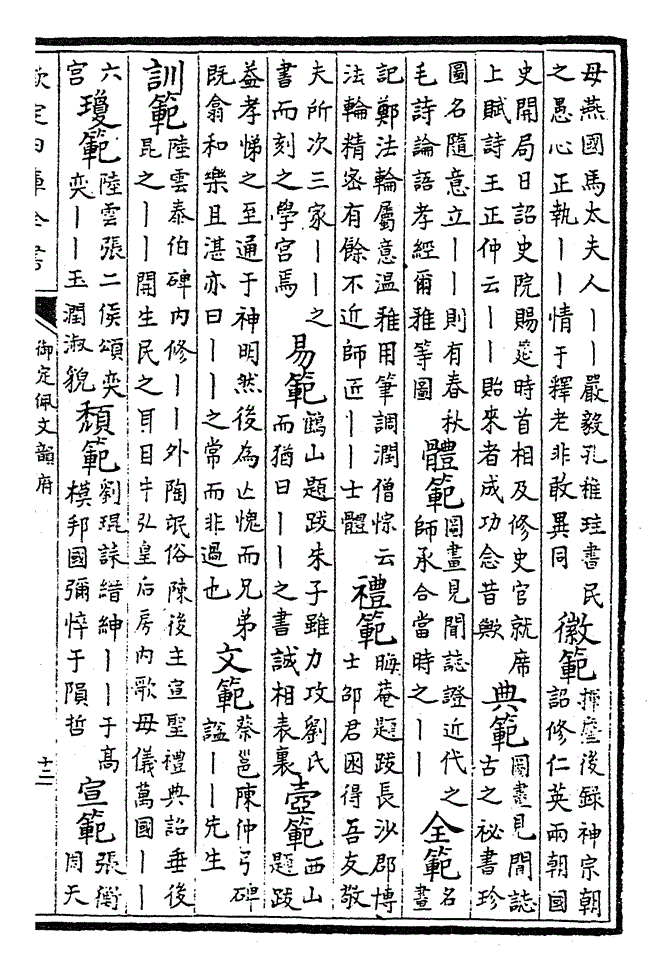 母燕國馬太夫人丨丨嚴毅孔稚珪書民
之愚心正執丨丨情于釋老非敢異同
徽範
揮麈後錄神宗朝
詔修仁英兩朝國
史開局日詔史院賜筵時首相及修史官就席
上賦詩王正仲云丨丨貽來者成功念昔歟
典範
圖畫見聞誌
古之秘書珍
圖名隨意立丨丨則有春秋
毛詩論語孝經爾雅等圖
體範
圖畫見聞誌證近代之
師承合當時之丨丨
全範
名
畫
記鄭法輪屬意温雅用筆調潤僧悰云
法輪精密有餘不近師匠丨丨士體
禮範
晦菴題跋長沙郡博
士邵君囦得吾友敬
夫所次三家丨丨之
書而刻之學宮焉
易範
鶴山題跋朱子雖力攻劉氏
而猶曰丨丨之書誠相表裏
壼範
西山
題跋
益孝悌之至通于神明然後為亾愧而兄弟
既翕和樂且湛亦曰丨丨之常而非過也
文範
蔡邕陳仲弓碑
諡丨丨先生
訓範
陸雲泰伯碑内修丨丨外陶氓俗陳後主宣聖禮典詔垂後
昆之丨丨開生民之耳目牛弘皇后房内歌母儀萬國丨丨
六
宫
瓊範
陸雲張二侯頌奕
奕丨丨玉潤淑貌
頽範
劉琨誄縉紳丨丨于高
模邦國彌悴于隕哲
宣範
張衡
周天
欽定四庫全書
御定佩文韻府
十二